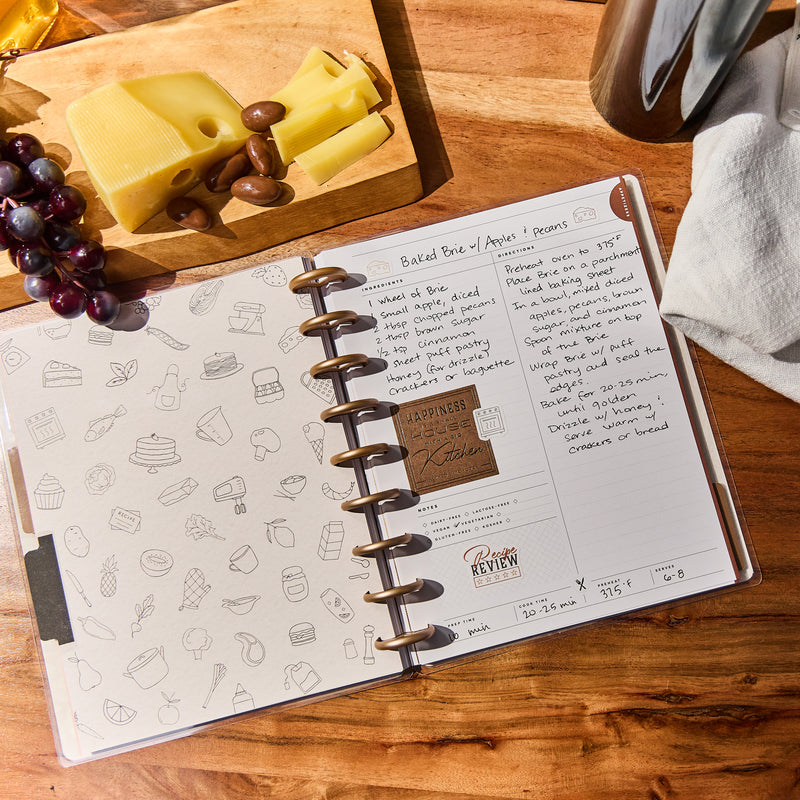 APPETIZERS
Baked Brie w/ Apples & Pecans
INGREDIENTS
1 wheel of Brie
1 small apple, diced
2 tbsp chopped pecans
2 tbsp brown sugar
1/2 tsp cinnamon
1 sheet puff pastry
Honey (for drizzle)
Crackers or baguette
HAPPINESS
HOUSE
Kitchen
NOTES
DAIRY-FREE
LACTOSE-FREE
VEGAN
VEGETARIAN
GLUTEN-FREE
KOSHER
Recipe
REVIEW
DIRECTIONS
Preheat oven to 375°F
Place Brie on a parchment
lined baking sheet
In a bowl, mixed diced
apples, pecans, brown
sugar, and cinnamon
Spoon mixture on top
of the Brie
Wrap Brie w/ puff
pastry and seal the
edges.
Bake for 20-25 min,
until golden
Drizzle w/ honey &
serve warm w/
crackers or bread
PREP TIME
10 min
COOK TIME
20-25 min
PREHEAT
375°F
SERVES
6-8
RECIPE